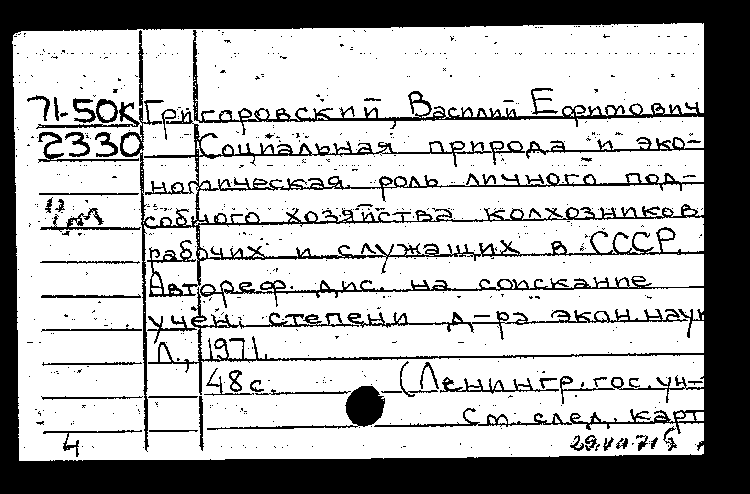 71-50к Григоровский, Василий Ефимович
2330 Социальная природа и эко-
номическая роль личного под-
собного хозяйства колхозников
рабочих и служащих в СССР.
Автореф. дис. на соискание
учен. степени д-ра экон. наук
Л., 1971.
48 с. (Ленингр. гос. ун-
См. след. карт
4